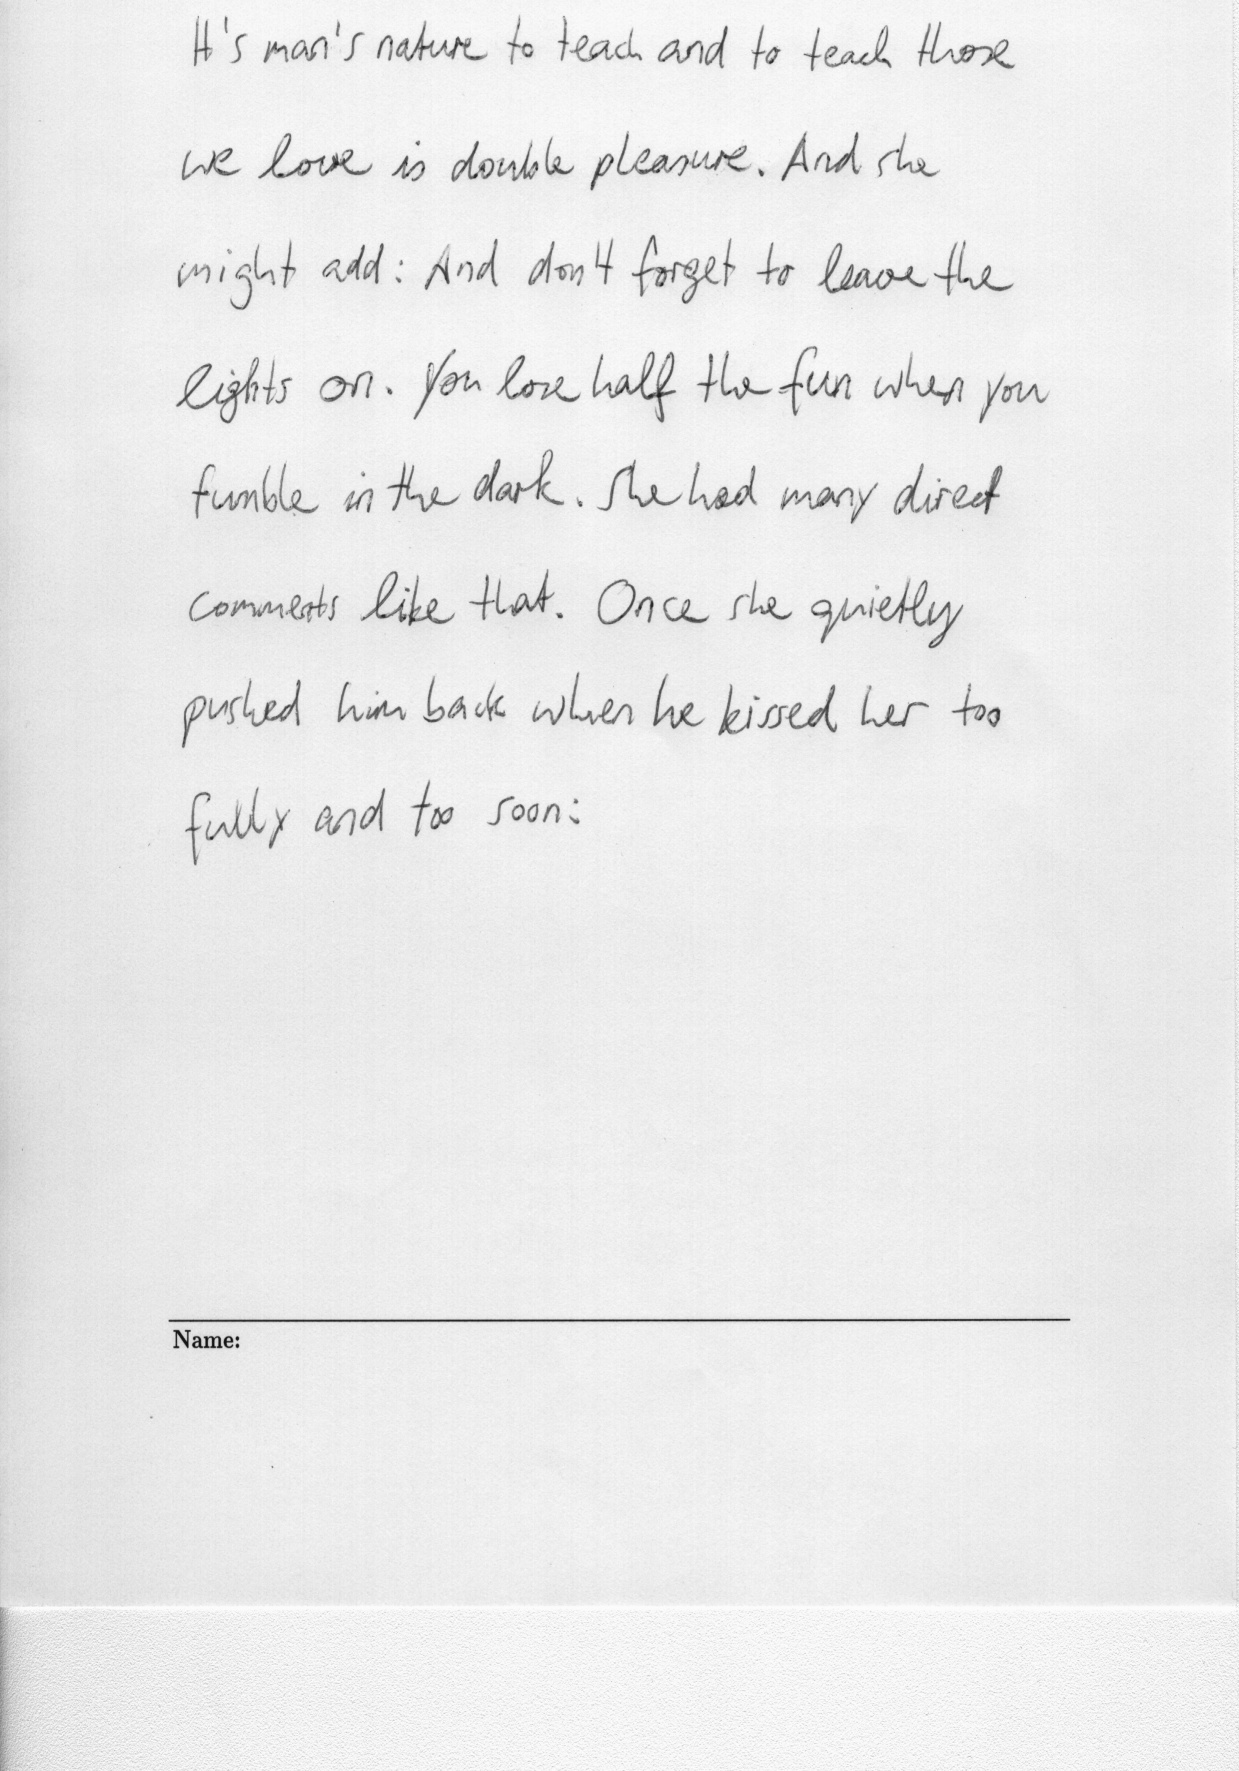 It's man's nature to teach and to teach those
we love is double pleasure. And she
might add: And don't forget to leave the
lights on. You lose half the fun when you
fumble in the dark. She had many direct
comments like that. Once she quietly
pushed him back when he kissed her too
fully and too soon:
Name: